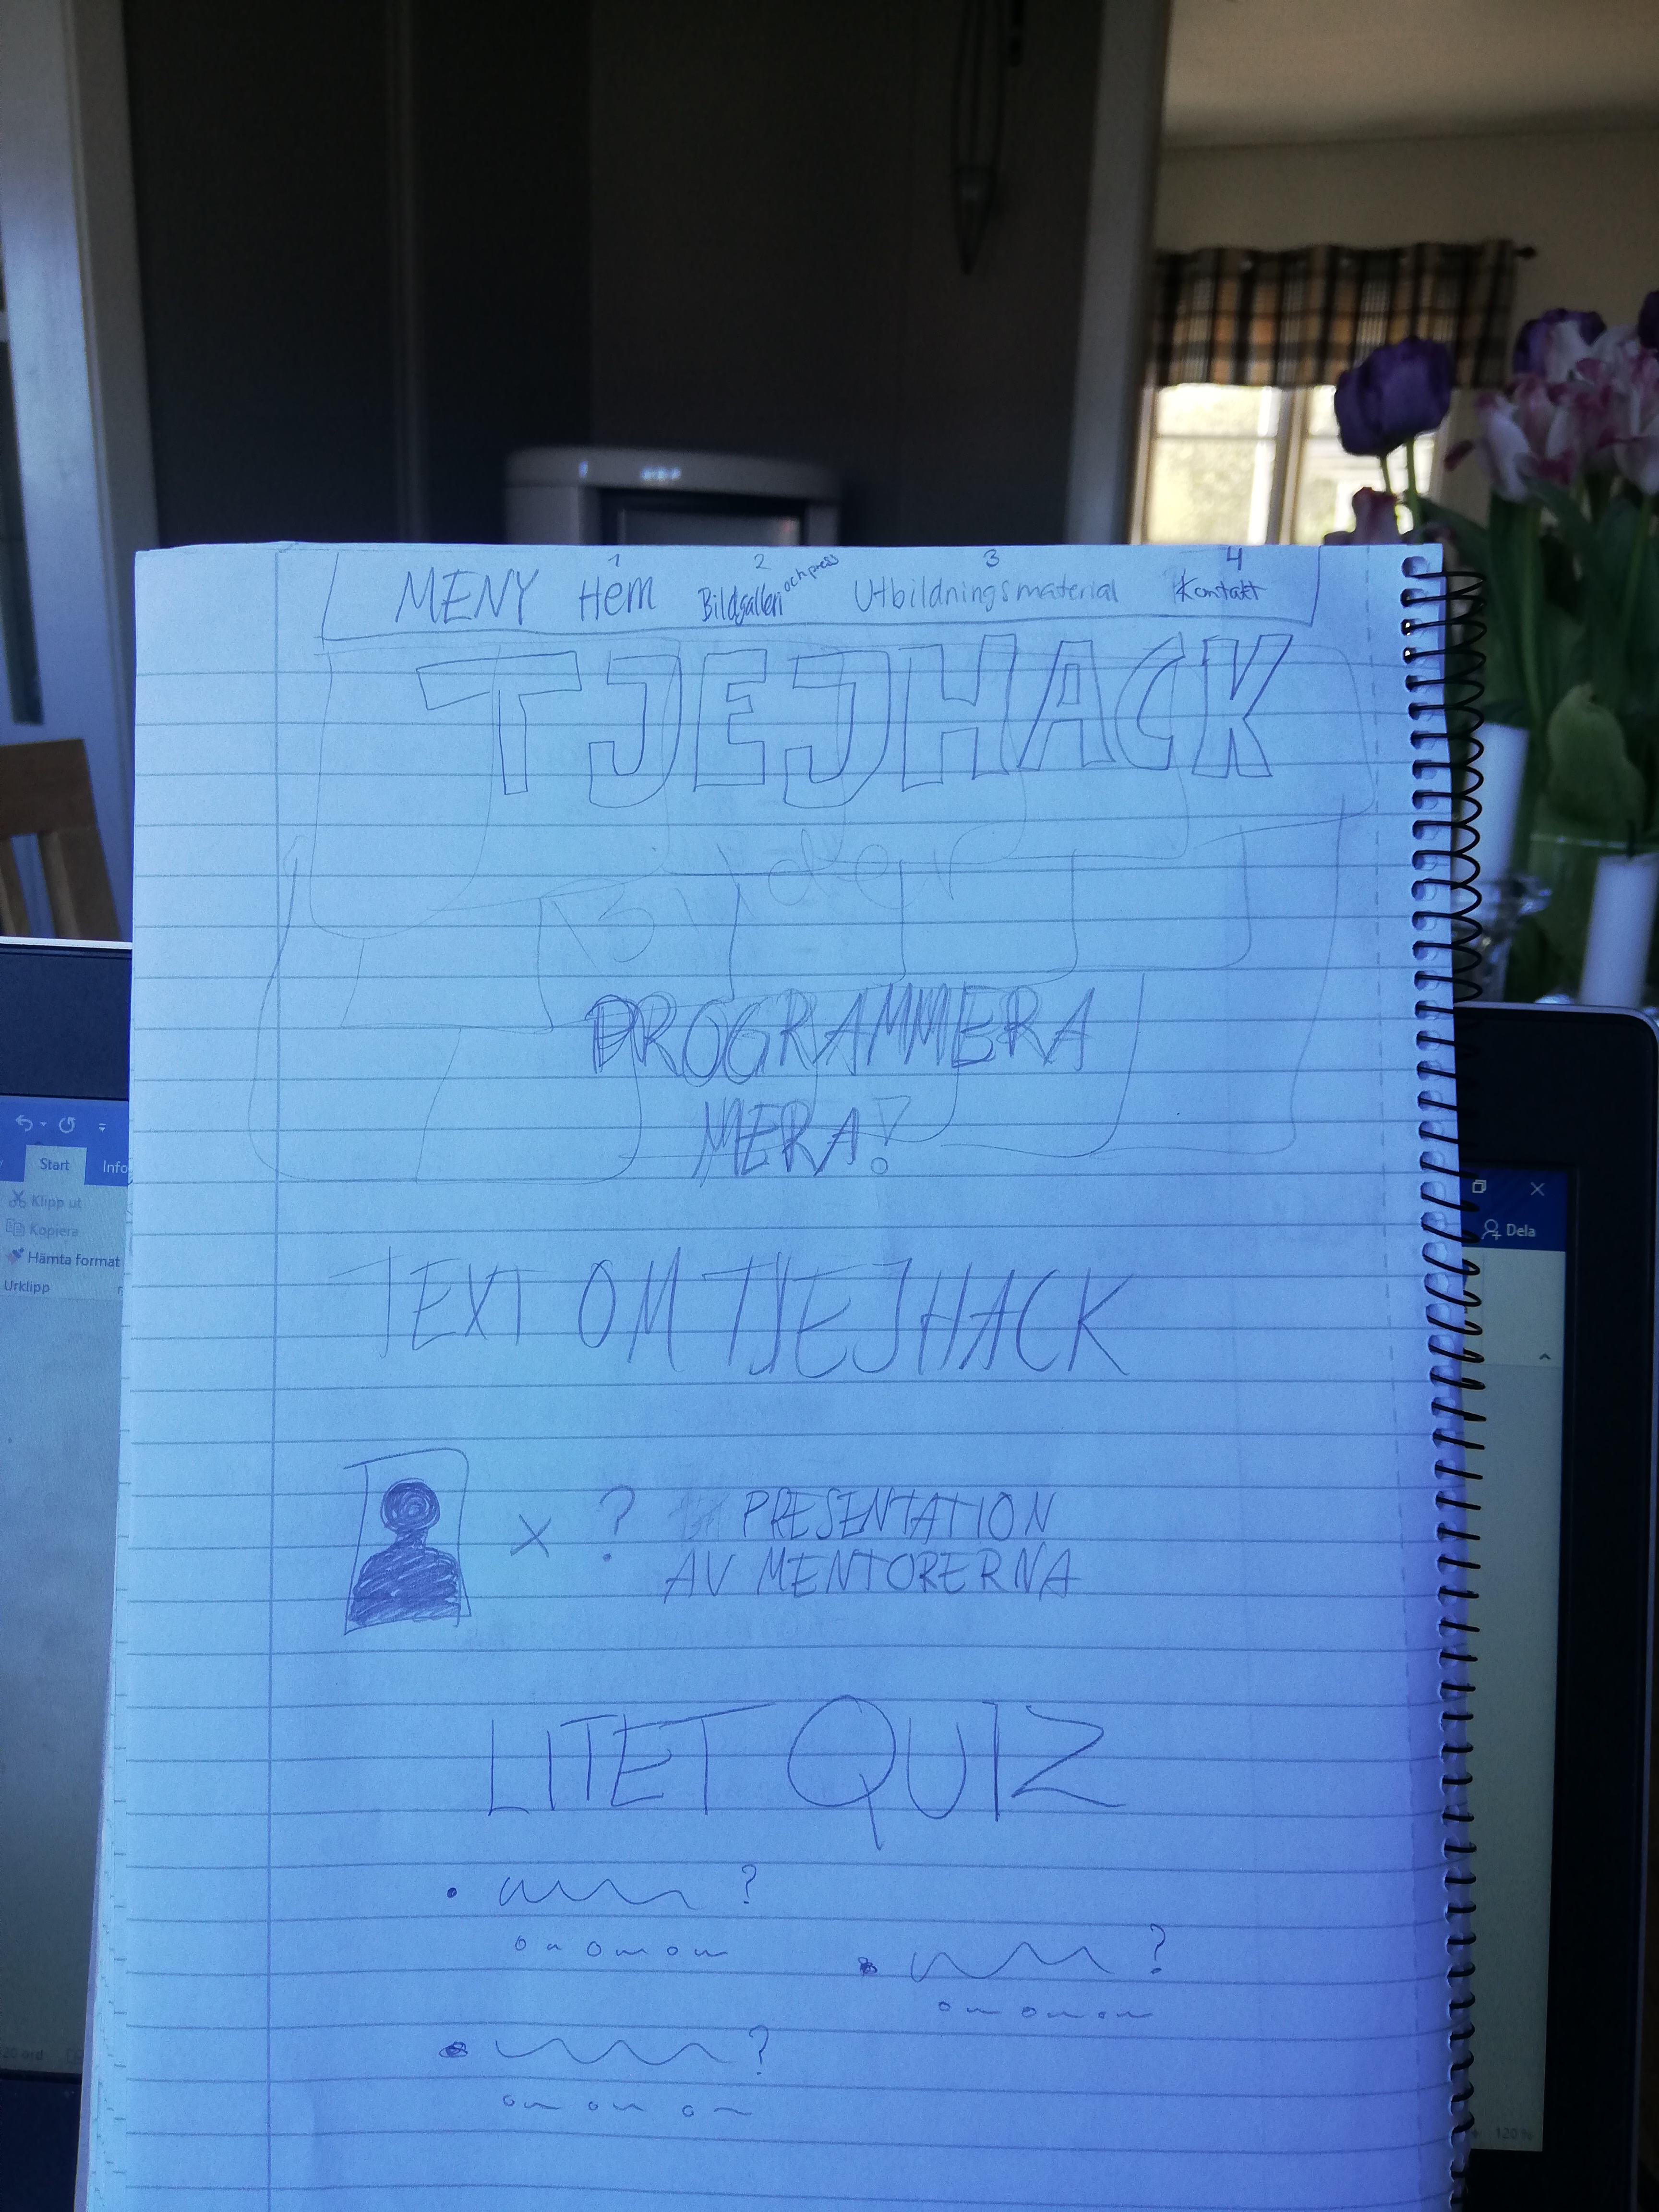 1 2 3 4
MENY Hem Bildgalleri och press Utbildningsmaterial Kontakt
TJEJHACK
Bilder
PROGRAMMERA
MERA!
TEXT OM TJEJHACK
X ? PRESENTATION
AV MENTORERNA
LITET QUIZ
?
?
?
Start Info
Klipp ut
Kopiera
Hämta format
Urklipp
Dela
120 %